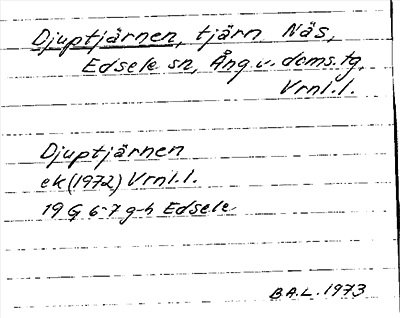 Djuptjärnen, tjärn Näs,
Edsele sn, Ång.v. doms.tg,
Vrnl.l.
Djuptjärnen
ek (1972) Vrnl.l.
19 G 6-7 g-h Edsele
B.A.L. 1973